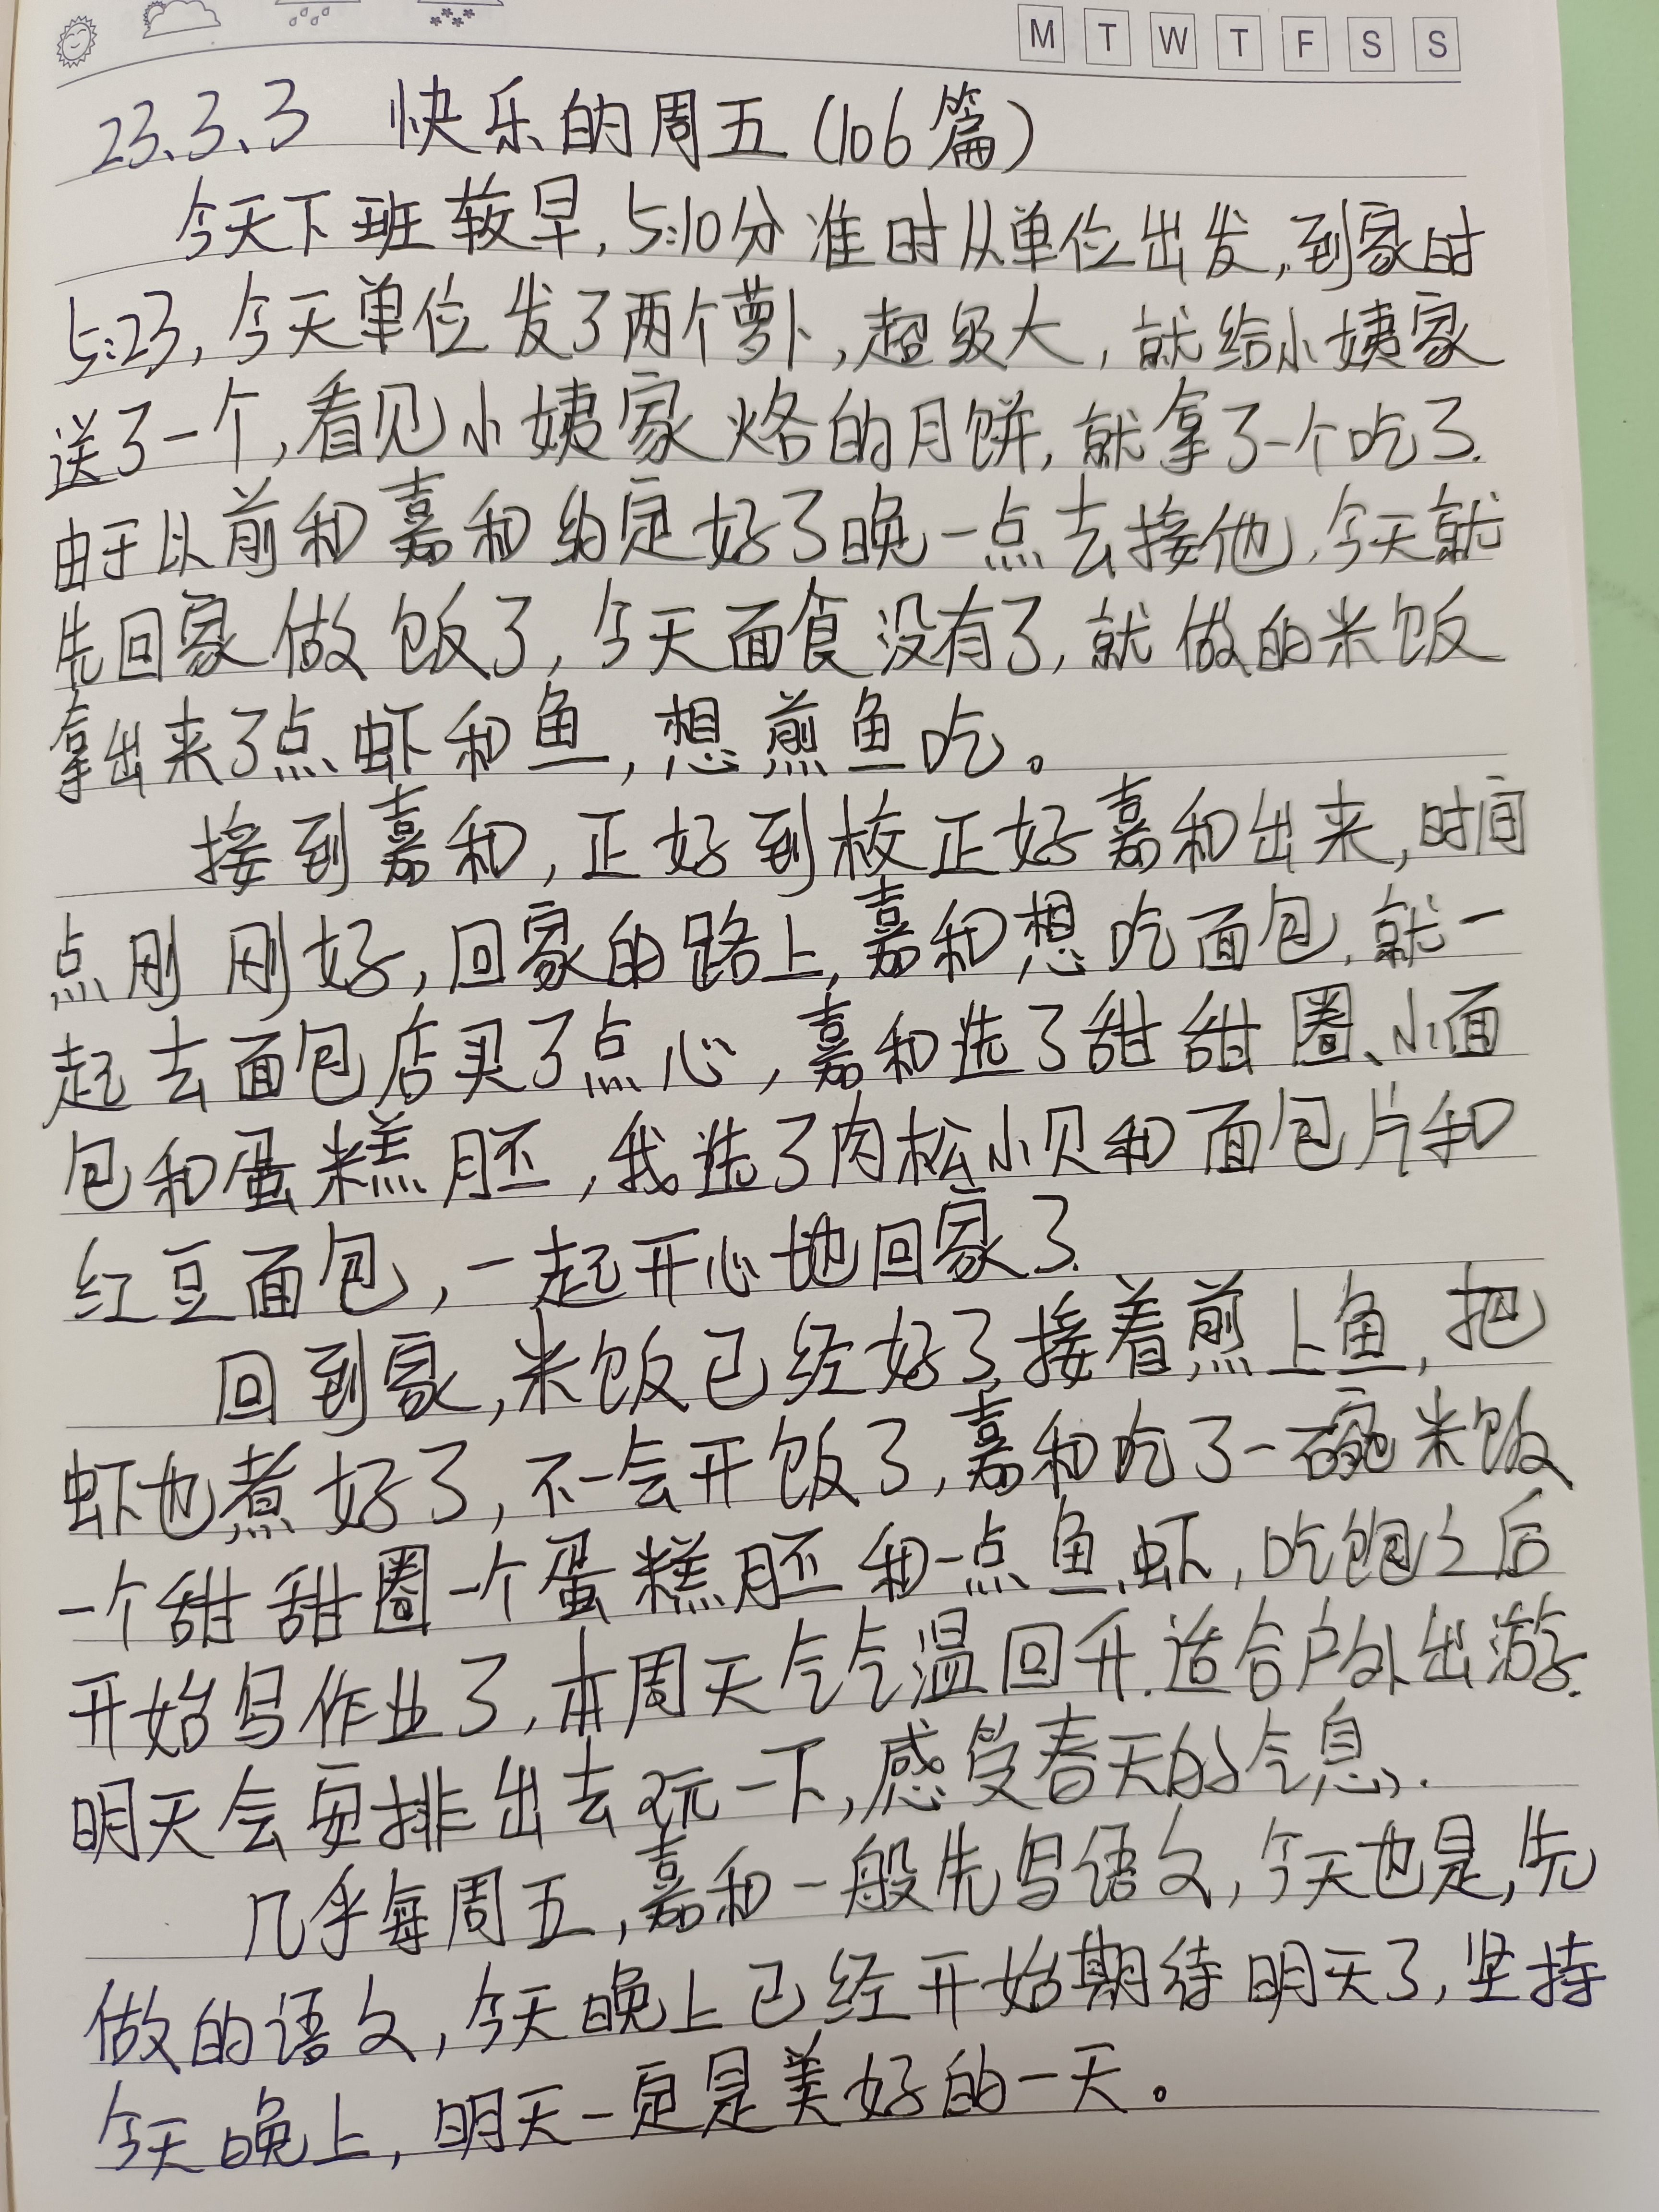 M T W T F S S
23.3.3 快乐的周五(106篇)
今天下班较早,5:10分准时从单位出发,到家时
5:23,今天单位发了两个萝卜,超级大,就给小姨家
送了一个,看见小姨家烙的月饼,就拿了一个吃了.
由于以前和嘉和约定好了晚一点去接他,今天就
先回家做饭了,今天面食没有了,就做的米饭
拿出来了点虾和鱼,想煎鱼吃。
接到嘉和,正好到校正好嘉和出来,时间
点刚刚好,回家的路上,嘉和想吃面包,就一
起去面包店买了点心,嘉和选了甜甜圈、小面
包和蛋糕胚,我选了肉松小贝和面包片和
红豆面包,一起开心地回家了.
回到家,米饭已经好了,接着煎上鱼,把
虾也煮好了,不一会开饭了,嘉和吃了一碗米饭
一个甜甜圈一个蛋糕胚和一点鱼虾,吃饱之后
开始写作业了,本周天气气温回升.适合户外出游.
明天会安排出去玩一下,感受春天的气息.
几乎每周五,嘉和一般先写语文,今天也是,先
做的语文,今天晚上已经开始期待明天了,坚持
今天晚上,明天一定是美好的一天。